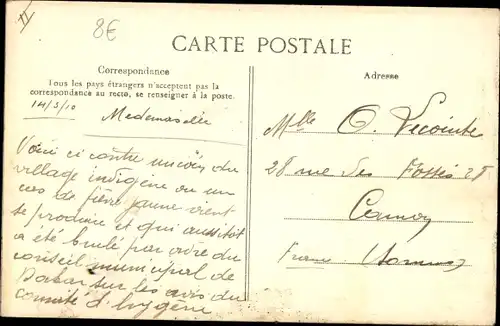 8€
CARTE POSTALE
Correspondance
Tous les pays étrangers n'acceptent pas la
correspondance au recto, se renseigner à la poste.
14/3/10
Mademoiselle
Voici ci contre un coin du
village indigène ou un
cas de fièvre jaune vient
se produire et qui aussitôt
a été brulé par ordre du
conseil municipal de
Dakar sur les avis du
comité d'hygiène
Adresse
Mlle O. Lecointe
28 rue des Fossés 28
France Somme